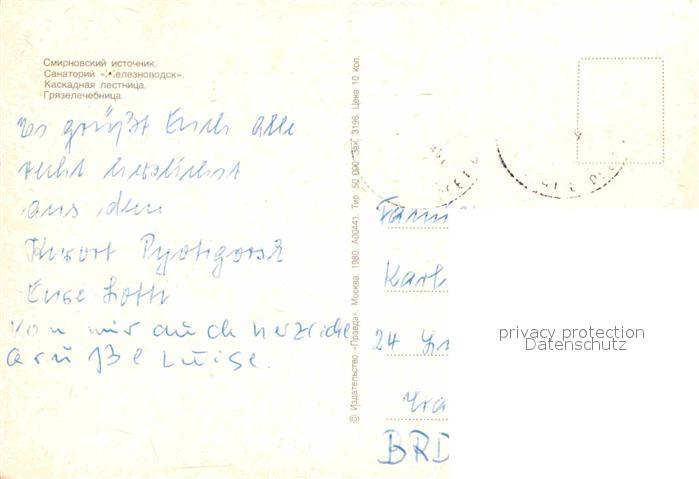 Смирновский источник.
Санаторий «Железноводск».
Каскадная лестница.
Грязелечебница.
Es grüßt Euch alle
recht herzlichst
aus dem
Kurort Pyatigorsk
Eure Lotte
von mir auch herzliche
Grüße Luise.
© Издательство «Правда», Москва. 1980. А00441. Тир. 50 000. Зак. 3196. Цена 10 коп.
Fami
Karl
24
BRD
privacy protection
Datenschutz